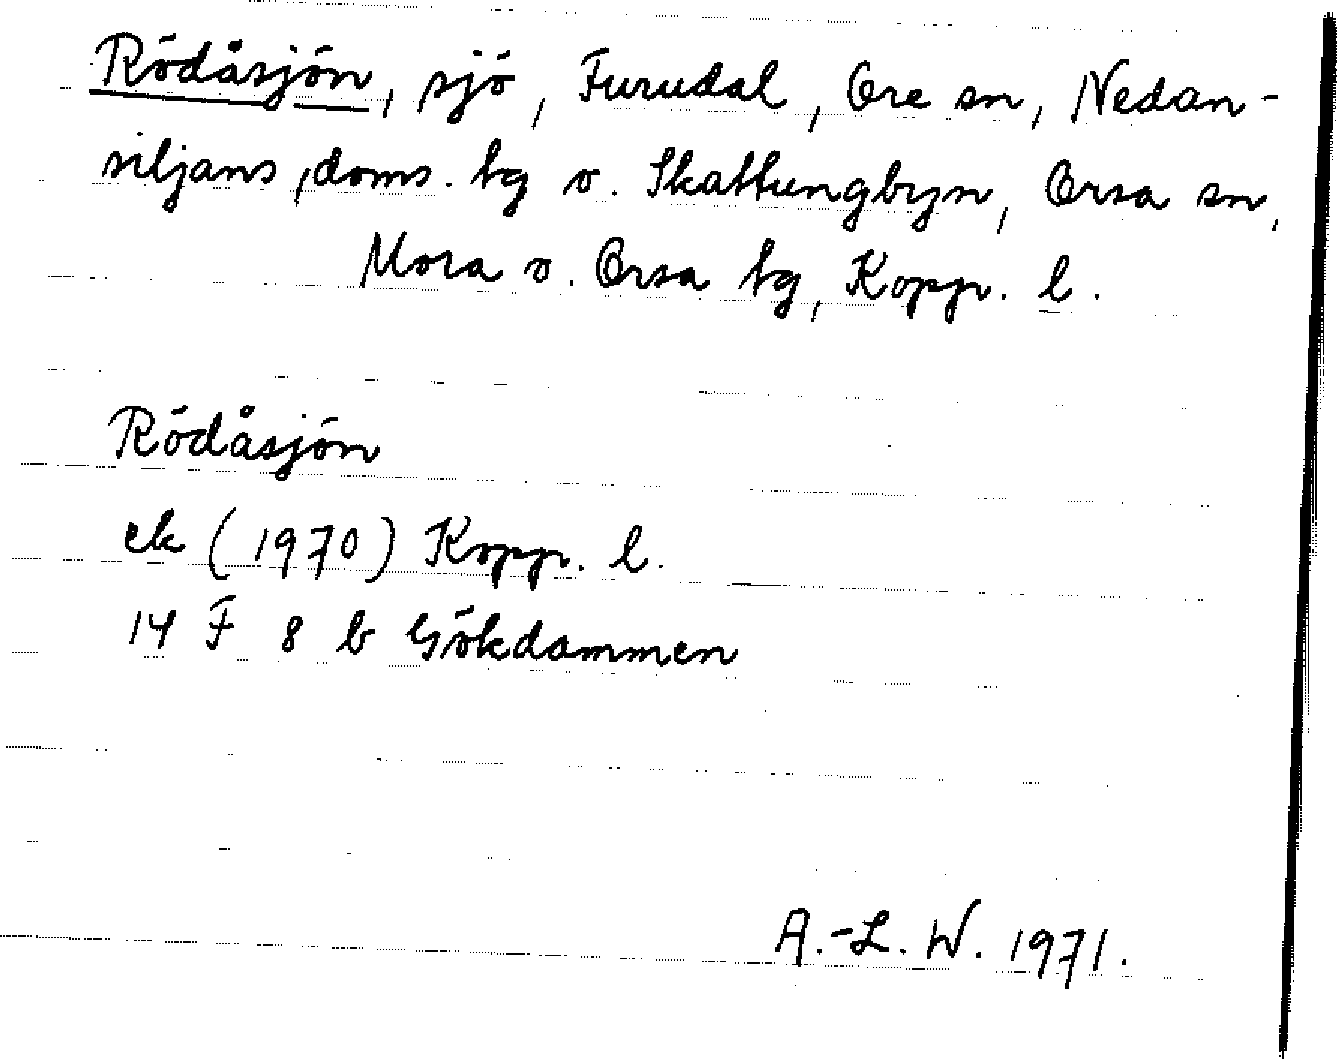 Rödåsjön, sjö, Furudal, Ore sn, Nedan-
siljans, doms. tg o. Skattungbyn, Orsa sn,
Mora o. Orsa tg, Kopp. l.
Rödåsjön
ek (1970) Kopp. l.
14 F 8 b Gökdammen
A.-L. W. 1971.